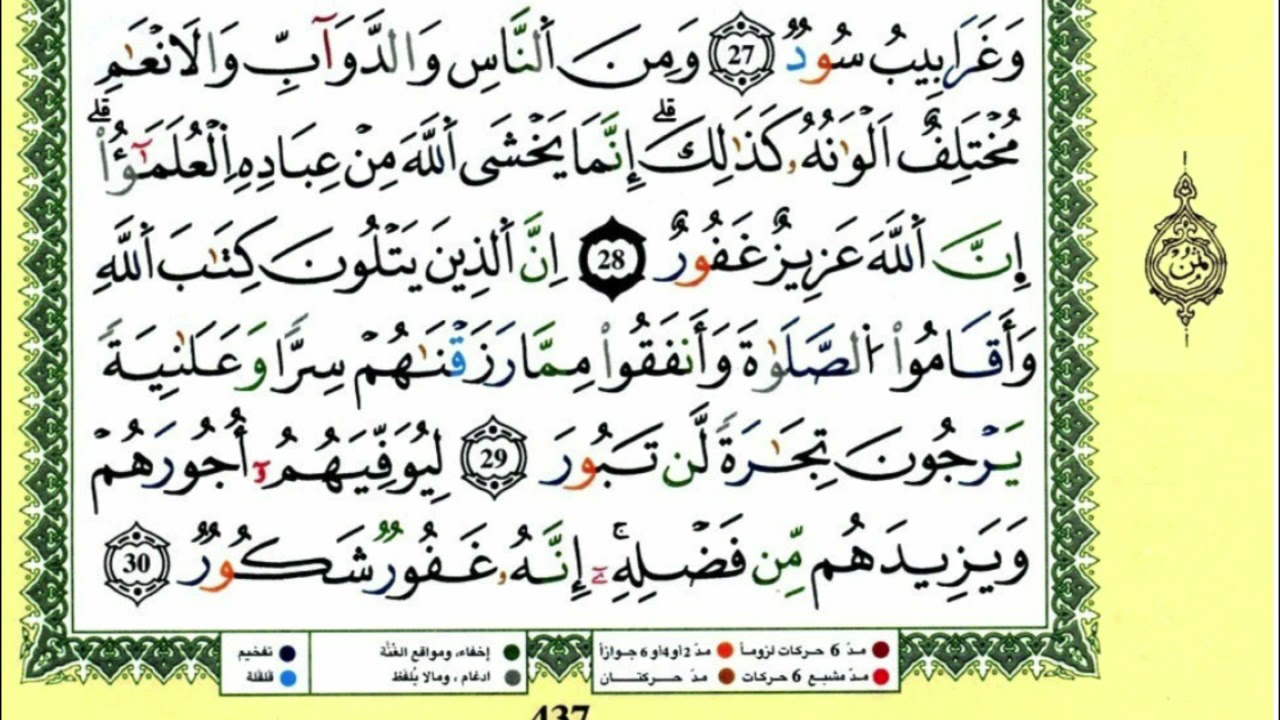 وَغَرَابِيبُ سُودٌ 27 وَمِنَ اَ۬لنَّاسِ وَالدَّوَآبِّ وَالَانْعَٰمِ
مُخْتَلِفٌ اَلْوَٰنُهُۥ كَذَٰلِكَۖ إِنَّمَا يَخْشَى اَ۬للَّهَ مِنْ عِبَادِهِ اِ۬لْعُلَمَٰٓؤُاْۖ
إِنَّ اَ۬للَّهَ عَزِيزٌ غَفُورٌ 28 اِنَّ اَ۬لذِينَ يَتْلُونَ كِتَٰبَ اَ۬للَّهِ
وَأَقَامُواْ اُ۬لصَّلَوٰةَ وَأَنفَقُواْ مِمَّا رَزَقْنَٰهُمْ سِرّاٗ وَعَلَٰنِيَةٗ
يَرْجُونَ تِجَٰرَةٗ لَّن تَبُورَ 29 لِيُوَفِّيَهُمُۥٓ أُجُورَهُمْ
وَيَزِيدَهُم مِّن فَضْلِهِۦٓۚ إِنَّهُۥ غَفُورٌ شَكُورٌ 30
مدّ 6 حركات لزوماً مدّ 2 أو 4 أو 6 جوازاً إخفاء، ومواقع الغُنَّة تفخيم
مدّ مشبع 6 حركات مدّ حركتان ادغام، ومالا يُلفَظ قلقلة
437